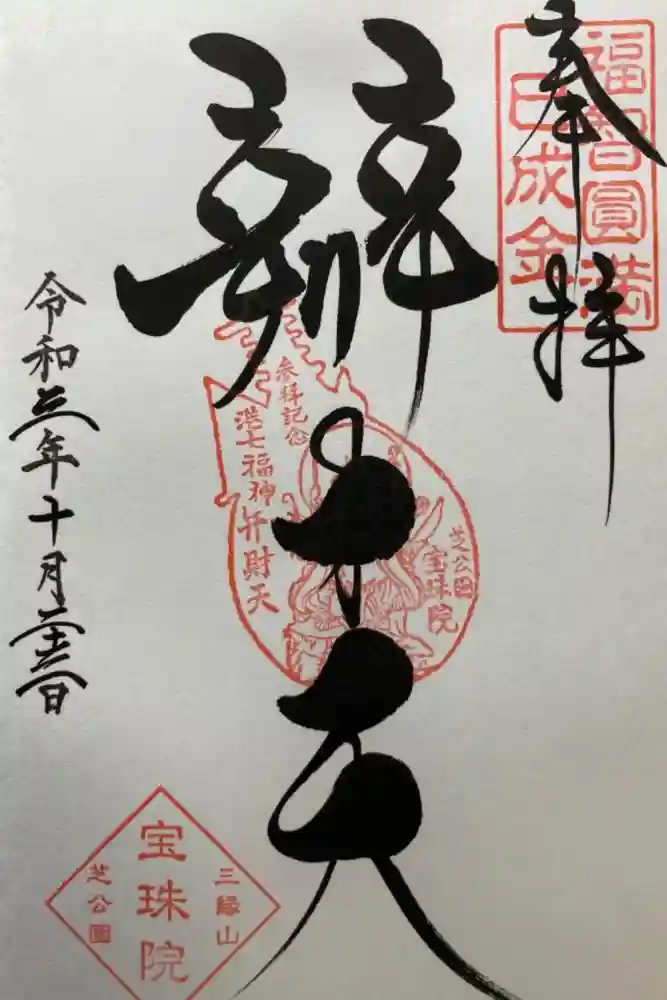 奉拝
福智圓満
巳成金
辯才天
参拝記念
港七福神弁財天
芝公園
宝珠院
令和三年十月
日
三縁山
宝珠院
芝公園